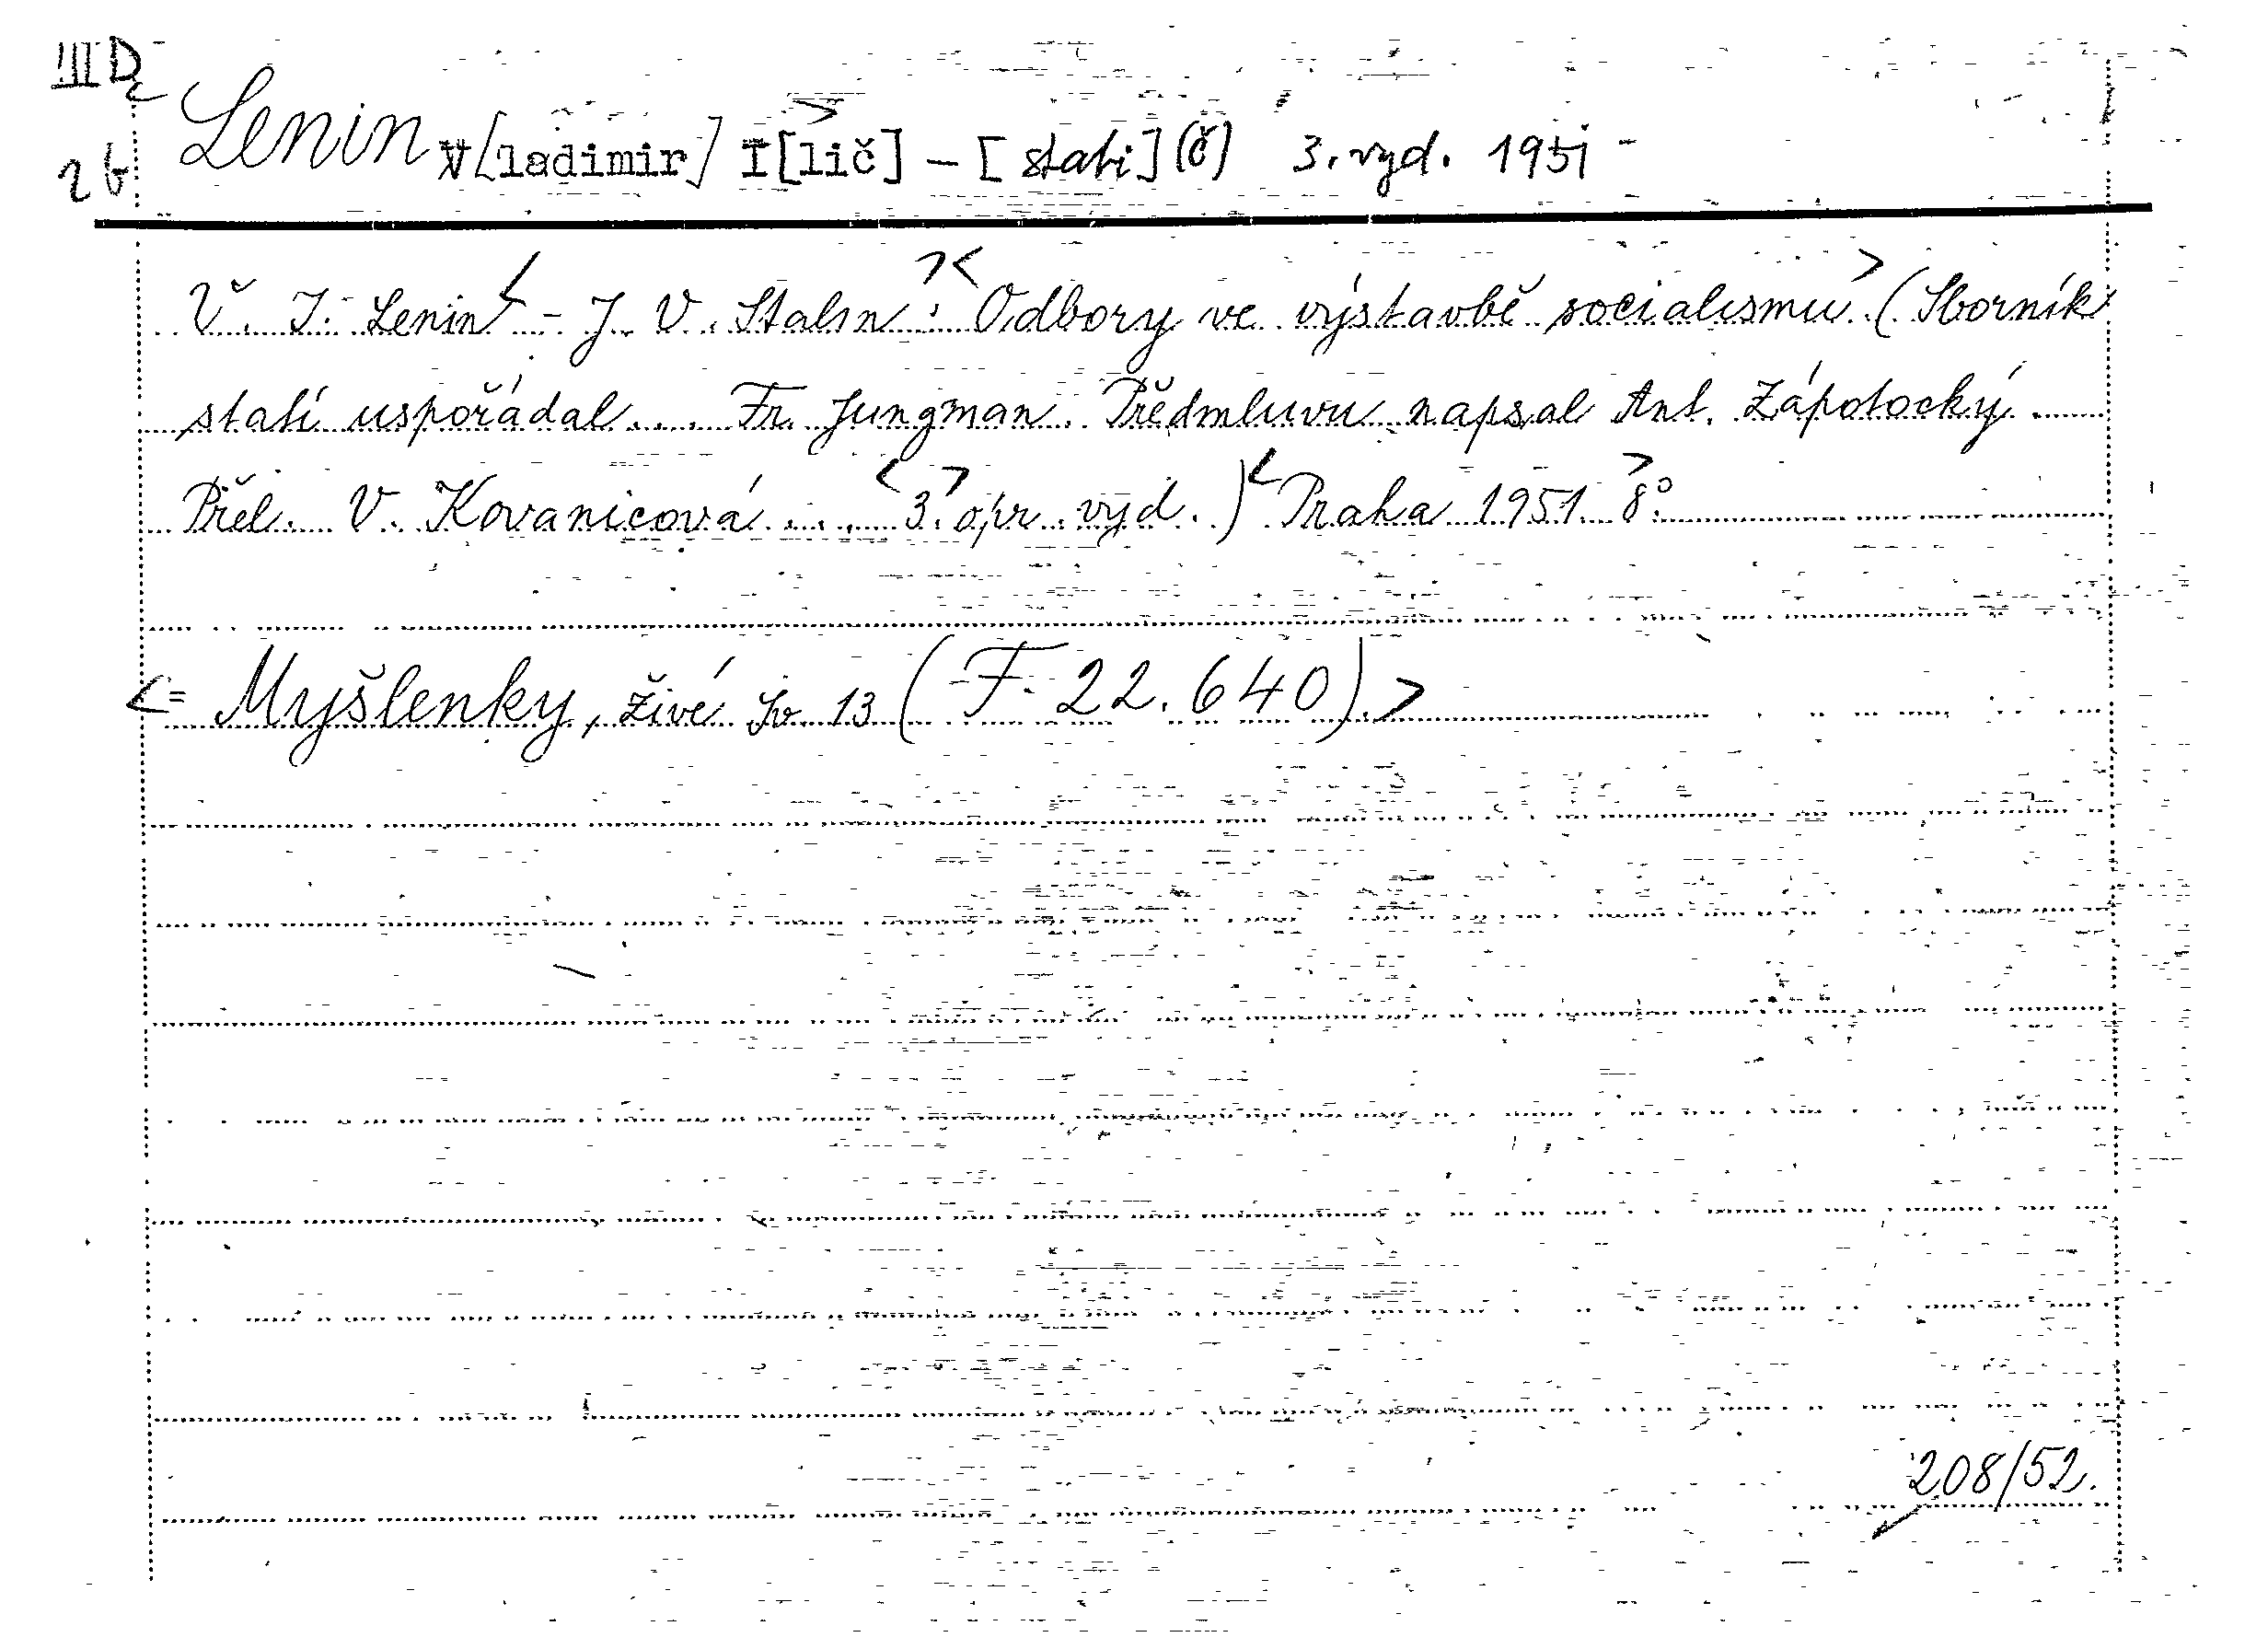 III D
2b
Lenin V[ladimir] I[lič] - [stati](č) 3. vyd. 1951 -
V. I. Lenin - J. V. Stalin: Odbory ve výstavbě socialismu. (Sborník
statí uspořádal ... Fr. Jungman. Předmluvu napsal Ant. Zápotocký.
Přel. V. Kovanicová ... 3. opr. vyd.) Praha 1951. 8°.
<= Myšlenky, živé sv. 13 (F 22.640).>
208/52.